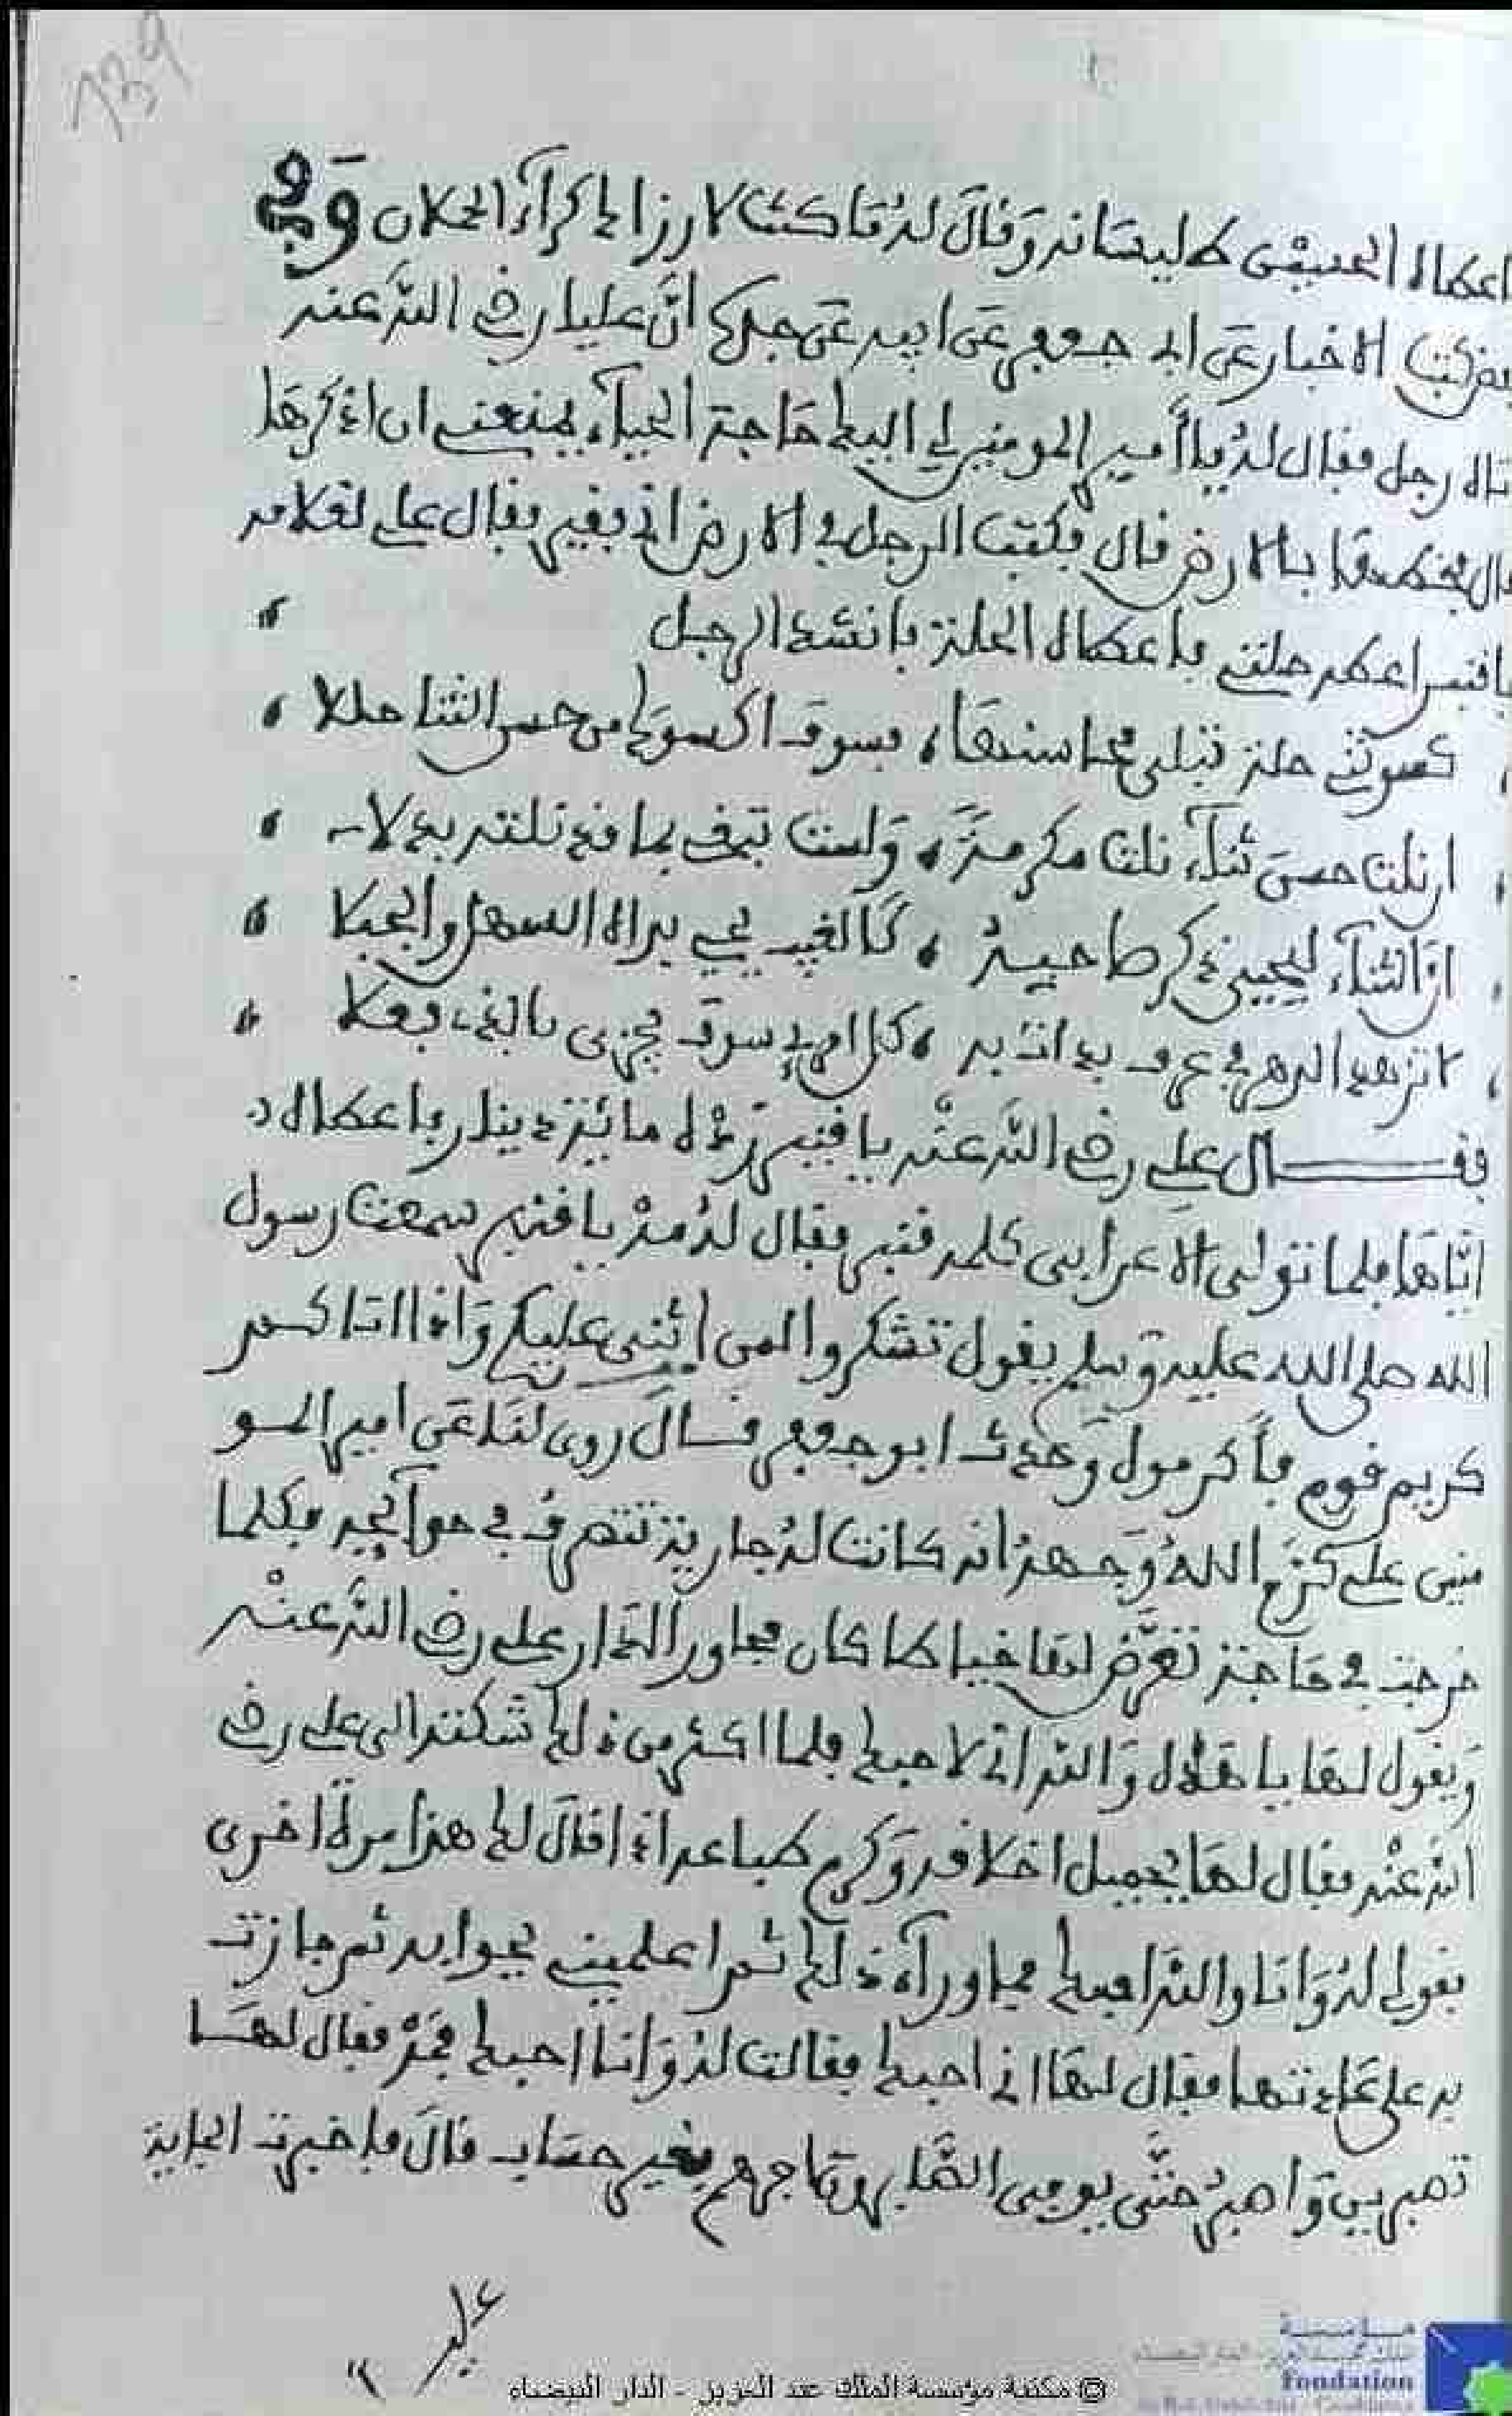 739
اعطاه الحنيفى طليسانه وقال له ما كنت لارزا لك كراء الحلان وفي
بعض كتب الاخبار عن ابي جعفر عن ابيه عن جدك ان عليا رضي الله عنه
تاه رجل فقال له يا أمير المومنين لي اليك حاجة الحياء يمنعني ان اذكرها
ال فخطها بالارض قال فكتب الرجل في الارض اني فقير فقال علي لغلامه
يا قنبر اعطه حلتي فاعطاه الحلة فانشد الرجل
كسوتني حلة تبلى محاسنها ، فسوف اكسوك من حسن الثنا حللا
ان نلت حسن ثناء نلت مكرمة ، ولست تبغي بما قد نلته بدلا
ان الثناء ليحيي ذكر صاحبه ، كالغيث يحيي نداه السهل والجبلا
لا تزهد الدهر في عرف بدات به ، كل امرئ سوف يجزى بالذي فعلا
فقال علي رضي الله عنه يا قنبر زده مائة دينار فاعطاه
اياها فلما تولى الاعرابي كلمه قنبر فقال له مه يا قنبر سمعت رسول
الله صلى الله عليه وسلم يقول تشكروا لمن اثنى عليكم واذا اتاكم
كريم قوم فأكرموه وحدث ابو جعفر قال روي لنا عن امير المو
منين علي كرم الله وجهه انه كانت له جارية تتصرف في حوآئجه فكلما
خرجت في حاجة تعرض لها خياطا كان مجاورا لدار علي رضي الله عنه
ويقول لها يا هذه والله اني لاحبك فلما اكثر من ذلك شكته الى علي رضي
الله عنه فقال لها بجميل اخلاقه وكرم طباعه اذا قال لك هذا مرة اخرى
فقولي له وانا والله احبك فما ورآء ذلك ثم اعلميني بجوابه ثم جازت
به على عادتها فقال لها اني احبك فقالت له وانا احبك فمه فقال لها
تصبرين واصبر حتى يوفى الصابرون اجرهم بغير حساب قال فاخبرت الجارية
عليا
© مكتبة مؤسسة الملك عبد العزيز - الدار البيضاء
مؤسسة
Fondation